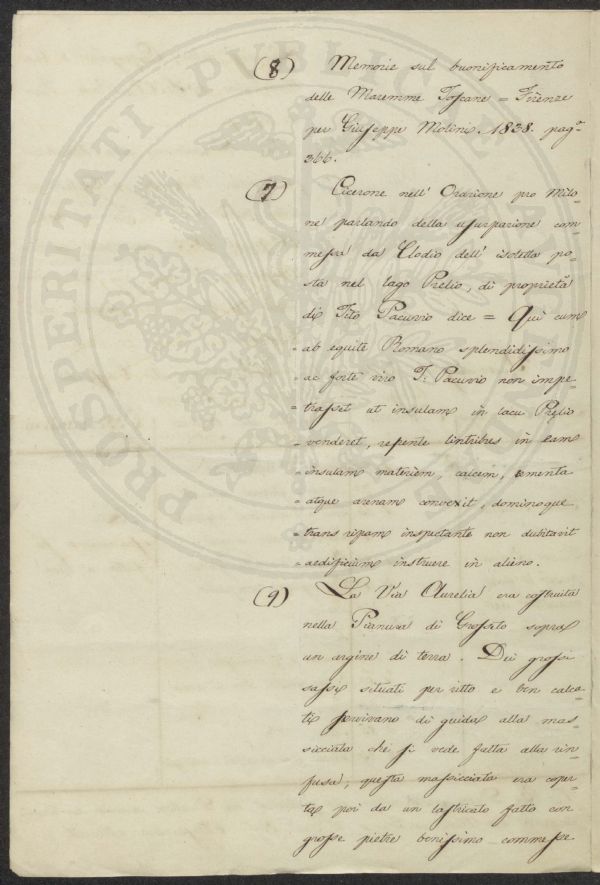 (8) Memorie sul buonificamento
delle Maremme Toscane = Firenze
per Giuseppe Molini. 1838. pagª
366.
(7) Cicerone nell' Orazione pro Milo-
ne parlando della usurpazione com-
messa da Clodio dell' isoletta po-
sta nel lago Prelio, di proprietà
di Tito Pacuvio dice = Qui cum
= ab equite Romano splendidissimo
= ac forte viro T. Pacuvio non impe-
= trasset ut insulam in lacu Prelio
= venderet, repente lintribus in eam
= insulam materiem, calcem, cementa
= atque arenam convexit, dominoque
= trans ripam inspectante non dubitavit
= aedificium instruere in alieno.
(9) La Via Aurelia era costruita
nella Pianura di Grosseto sopra
un argine di terra. Dei grossi
sassi situati per ritto e ben calca-
ti servivano di guida alla mas-
sicciata che si vede fatta alla rin-
fusa, questa massicciata era coper-
ta poi da un lastricato fatto con
grosse pietre benissimo commesse
PROSPERITATI PVBL